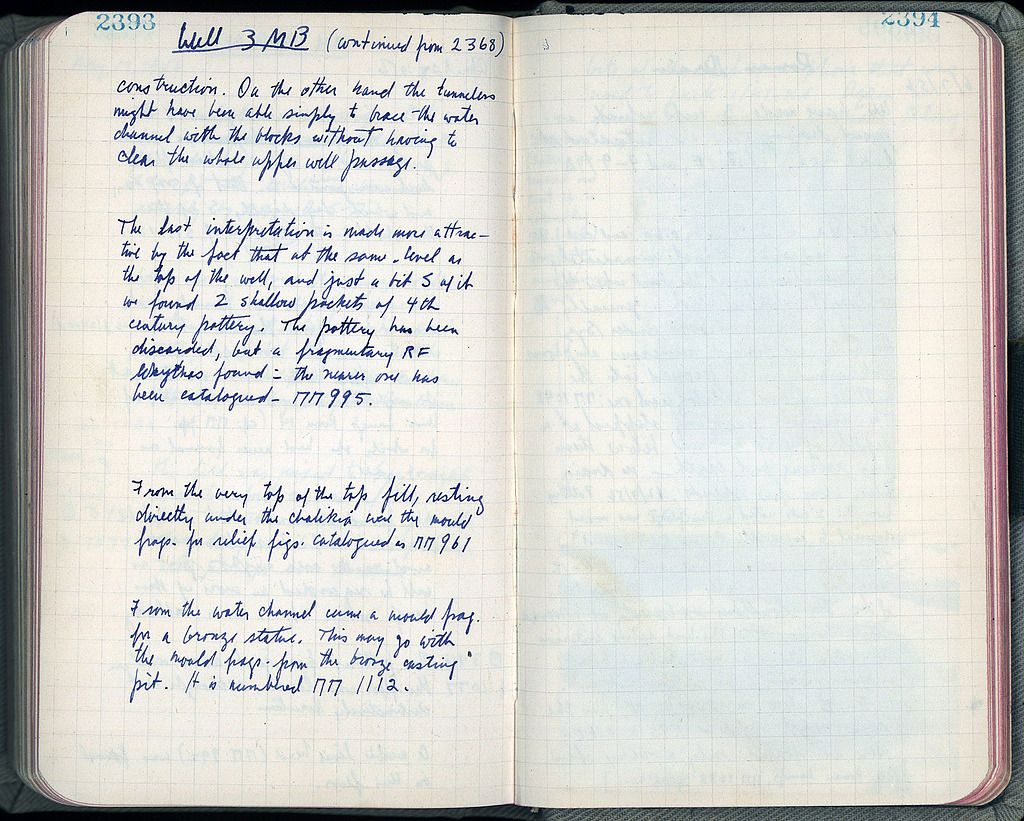 2393
Well 3 MB (continued from 2368)
construction. On the other hand the tunnelers
might have been able simply to brace the water
channel with the blocks without having to
clear the whole upper well passage.
The last interpretation is made more attrac-
tive by the fact that at the same level as
the top of the well, and just a bit S of it
we found 2 shallow pockets of 4th
century pottery. The pottery has been
discarded, but a fragmentary RF
found - the nearer one has
been catalogued - ΠΠ 995.
From the very top of the top fill, resting
directly under the chalikia were the mould
frags. for relief figs. catalogued as ΠΠ 961
From the water channel came a mould frag.
for a bronze statue. This may go with
the mould frags. from the bronze casting
pit. It is numbered ΠΠ 1112.
2394